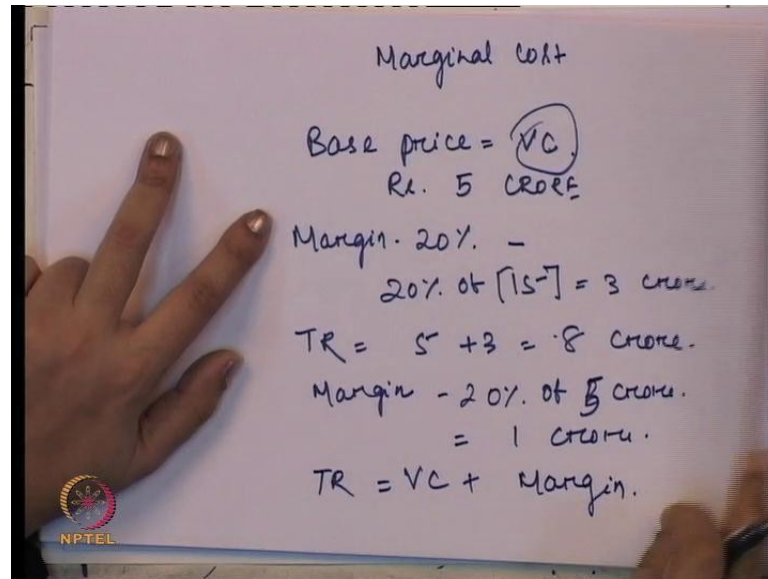 Marginal Cost
Base price = VC.
Re. 5 CRORE
Margin - 20% -
20% of [15] = 3 crore.
TR = 5 + 3 = 8 crore.
Margin - 20% of 5 crore.
= 1 crore.
TR = VC + Margin.
NPTEL